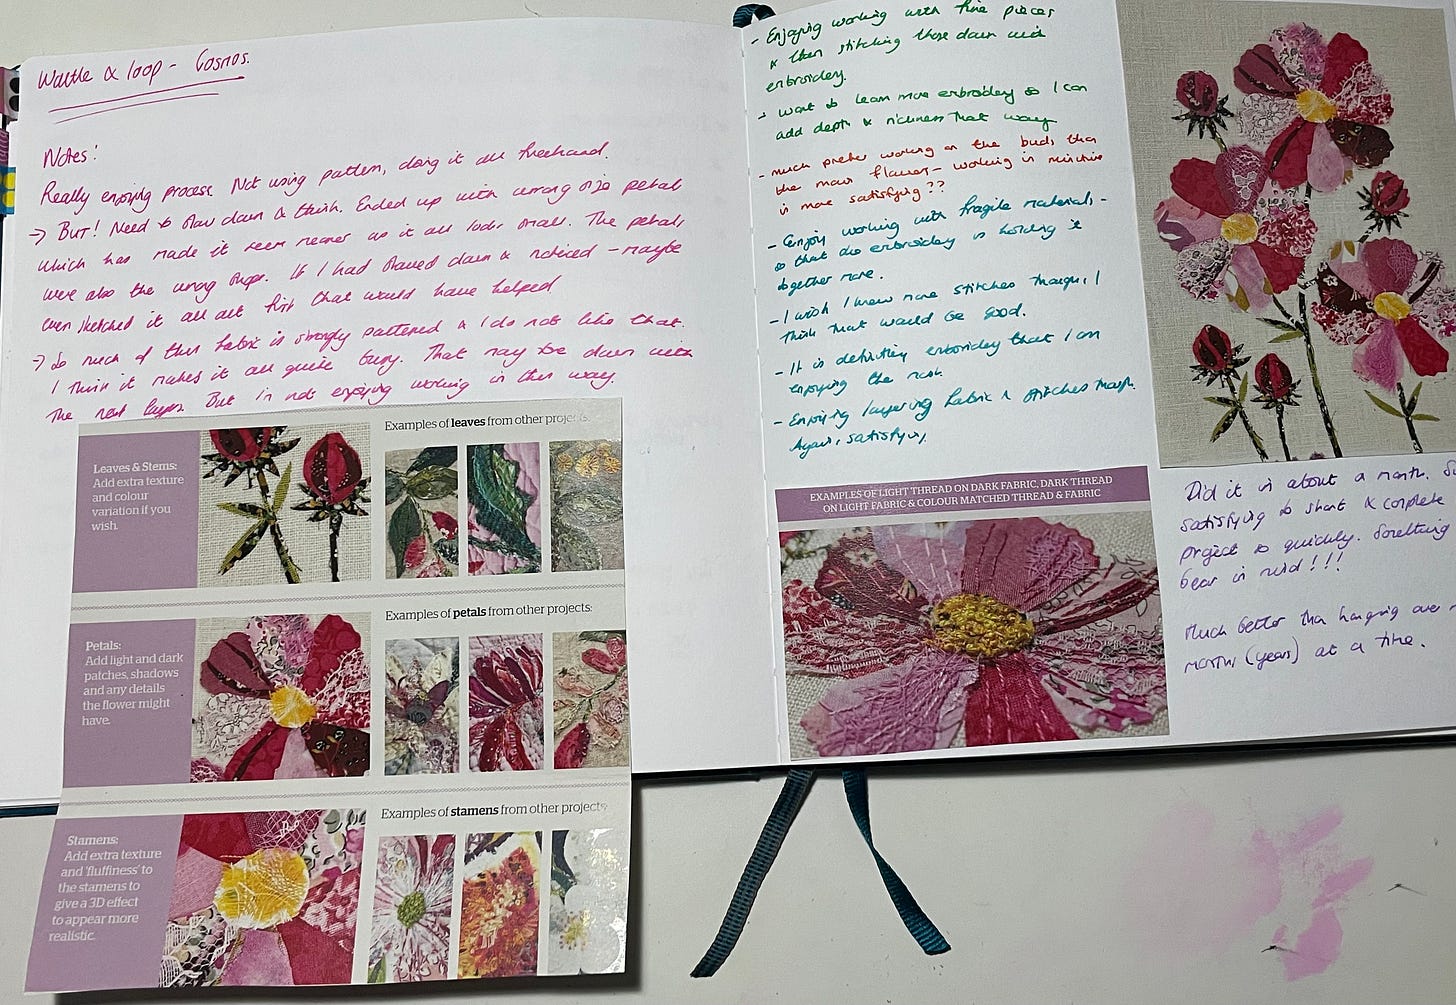 Wattle & loop - Cosmos.
Notes!
Really enjoying process. Not using pattern, doing it all freehand.
→ BUT! Need to slow down & think. Ended up with wrong size petal
which has made it seem as it all looks small. The petals
were also the wrong shape. If I had slowed down & noticed - maybe
even sketched it all out first that would have helped
→ So much of this fabric is strongly patterned & I do not like that.
I think it makes it all quite busy. That may tie down with
the next layer. But I'm not enjoying working in this way.
Leaves & Stems:
Add extra texture
and colour
variation if you
wish.
Examples of leaves from other projects.
Petals:
Add light and dark
patches, shadows
and any details
the flower might
have.
Examples of petals from other projects:
Stamens:
Add extra texture
and 'fluffiness' to
the stamens to
give a 3D effect
to appear more
realistic.
Examples of stamens from other projects:
- Enjoying working with fine pieces
& then stitching those down with
embroidery.
- Want to learn more embroidery so I can
add depth & richness that way
- much prefer working on the buds than
the main flower - working in miniature
is more satisfying??
- Enjoy working with fragile materials -
so that the embroidery is holding it
together more.
- I wish I knew more stitches though, I
think that would be good.
- It is definitely embroidery that I am
enjoying the most.
- Enjoying layering fabric & stitches though.
Again, satisfying.
EXAMPLES OF LIGHT THREAD ON DARK FABRIC, DARK THREAD
ON LIGHT FABRIC & COLOUR MATCHED THREAD & FABRIC
Did it in about a month. So
satisfying to start & complete
project so quickly. Something
bear in mind!!!
Much better than hanging over
months (years) at a time.